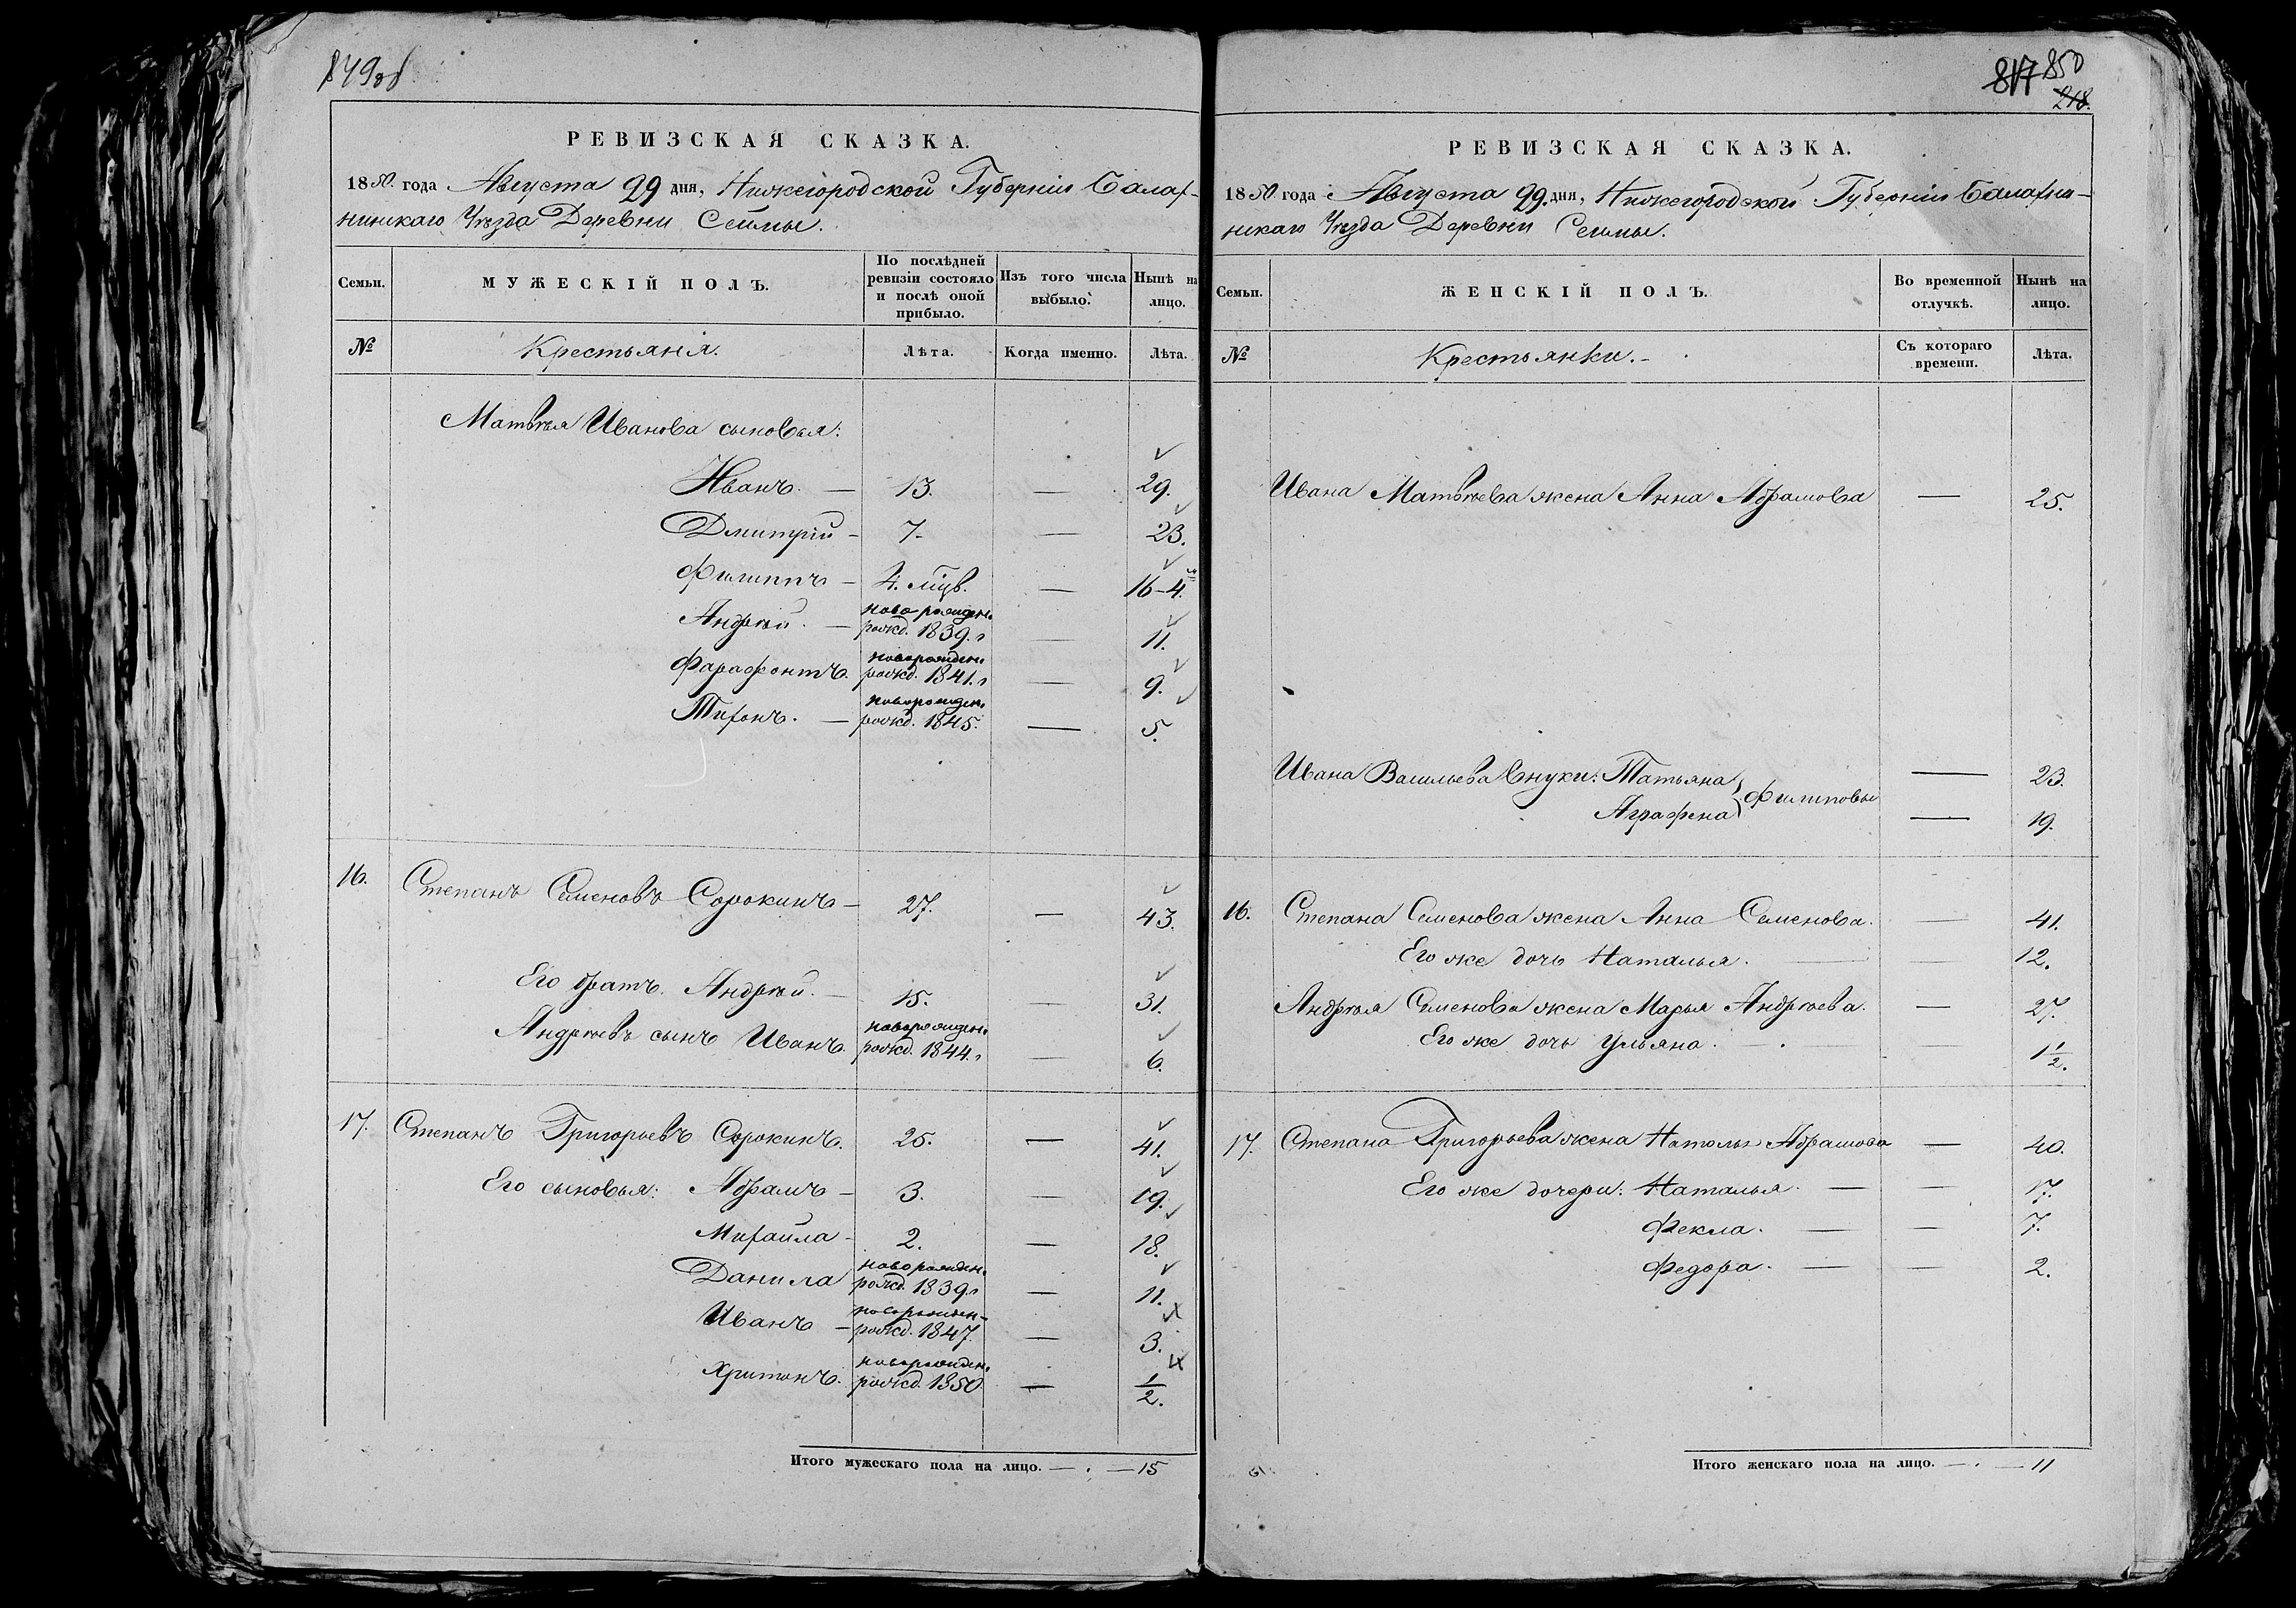 849об
РЕВИЗСКАЯ СКАЗКА.
1850. года Августа 29 дня, Нижегородской Губерніи Балах-
нинскаго Уѣзда Деревни Сеймы.
Семьи. МУЖЕСКІЙ ПОЛЪ. По послѣдней ревизіи состояло и послѣ оной прибыло. Изъ того числа выбыло. Нынѣ на лицо.
№ Крестьяня. Лѣта. Когда именно. Лѣта.
Матвѣя Иванова сыновья:
Иванъ. — 13. — 29.
Дмитрій — 7. — 23.
Филиппъ — 4. мѣц. — 16-4.м
Андрѣй. — новорожден. рожд. 1839. г — 11.
Фарафонтъ. новорожден. рожд. 1841. г — 9.
Тихонъ. — новорожден. рожд. 1845. — 5.
16. Степанъ Семеновъ Сорокинъ — 27. — 43.
Его братъ. Андрѣй. — 15. — 31.
Андрѣевъ сынъ Иванъ. новорожден. рожд. 1844. г — 6.
17. Степанъ Григорьевъ Сорокинъ. 25. — 41.
Его сыновья: Абрамъ — 3. — 19.
Михайла — 2. — 18.
Данила новорожден. рожд. 1839. г — 11.
Иванъ — новорожден. рожд. 1847. — 3.
Хритонъ. новорожден. рожд. 1850. — 1/2.
Итого мужескаго пола на лицо. — . — 15
817 850
218.
РЕВИЗСКАЯ СКАЗКА.
1850 года Августа 29. дня, Нижегородской Губерніи Балахни-
нскаго Уѣзда Деревни Сеймы.
Семьи. ЖЕНСКІЙ ПОЛЪ. Во временной отлучкѣ. Нынѣ на лицо.
№ Крестьянки. Съ котораго времени. Лѣта.
Ивана Матвѣева жена Анна Абрамова — 25.
Ивана Васильева внуки: Татьяна } Филиповы — 23.
Аграфена — 19.
16. Степана Семенова жена Анна Семенова. — 41.
Его же дочь Наталья. — 12.
Андрѣя Семенова жена Марья Андрѣева. — 27.
Его же дочь Ульяна. — 1 1/2.
17. Степана Григорьева жена Наталья Абрамова — 40.
Его же дочери: Наталья. — — 17.
Фекла. — — 7.
Федора. — — 2.
Итого женскаго пола на лицо. — . — 11